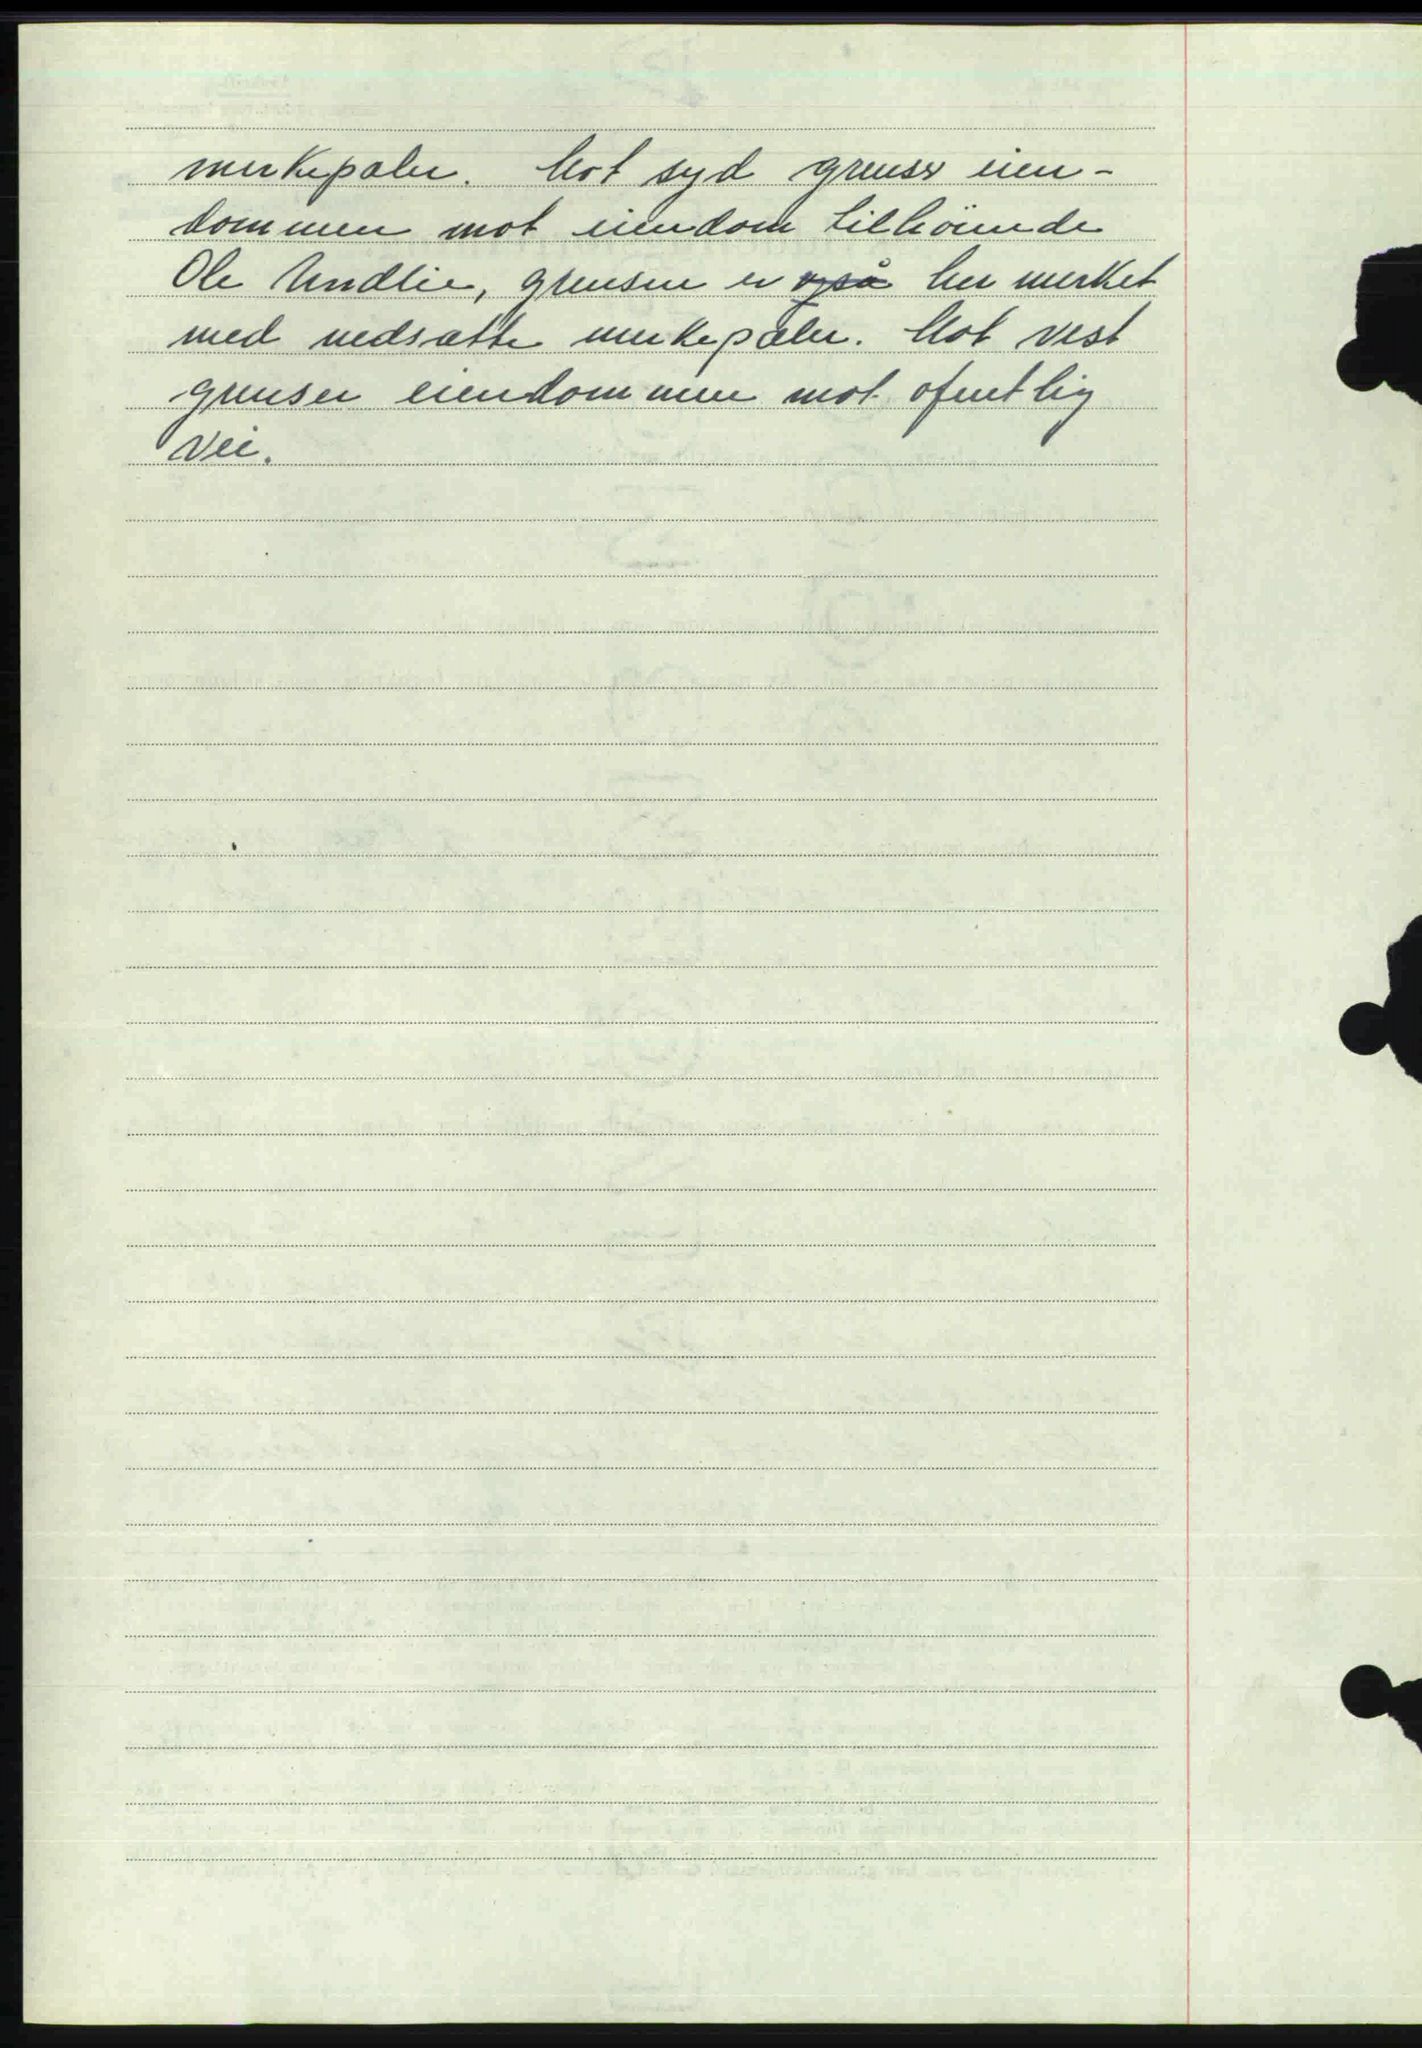 merkepæler. Mot syd grenser eien-
dommen mot eiendom tilhörende
Ole Undlie, grensen er også her merket
med nedsatte merkepæler. Mot vest
grenser eiendommen mot ofentlig
vei.